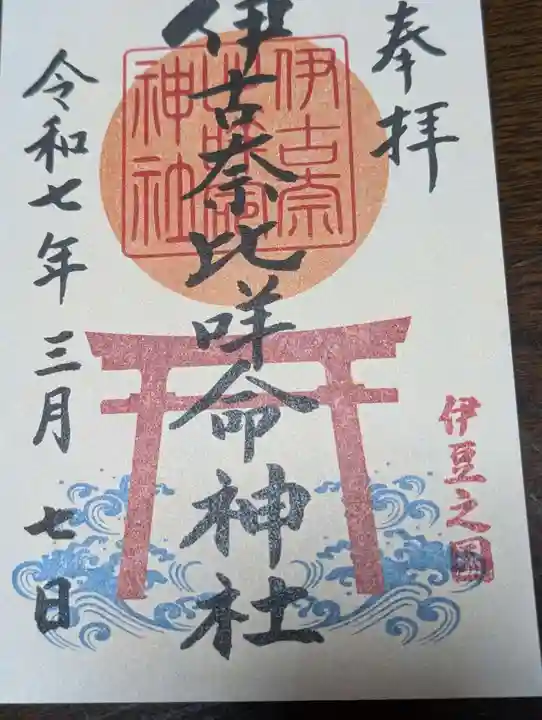 奉拝
伊古奈比咩命神社
伊古奈
比咩命
神社
伊豆之國
令和七年三月七日